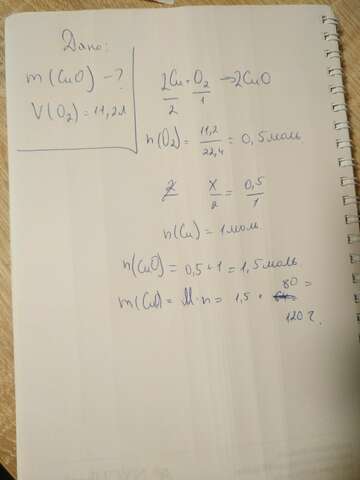 Дано:
m(CuO) - ?
V(O₂) = 11,2л
2Cu + O₂ → 2CuO
2 1
n(O₂) = 11,2/22,4 = 0,5 моль
x/2 = 0,5/1
n(Cu) = 1 моль
n(CuO) = 0,5 + 1 = 1,5 моль
m(CuO) = M · n = 1,5 · 80 =
120 г.